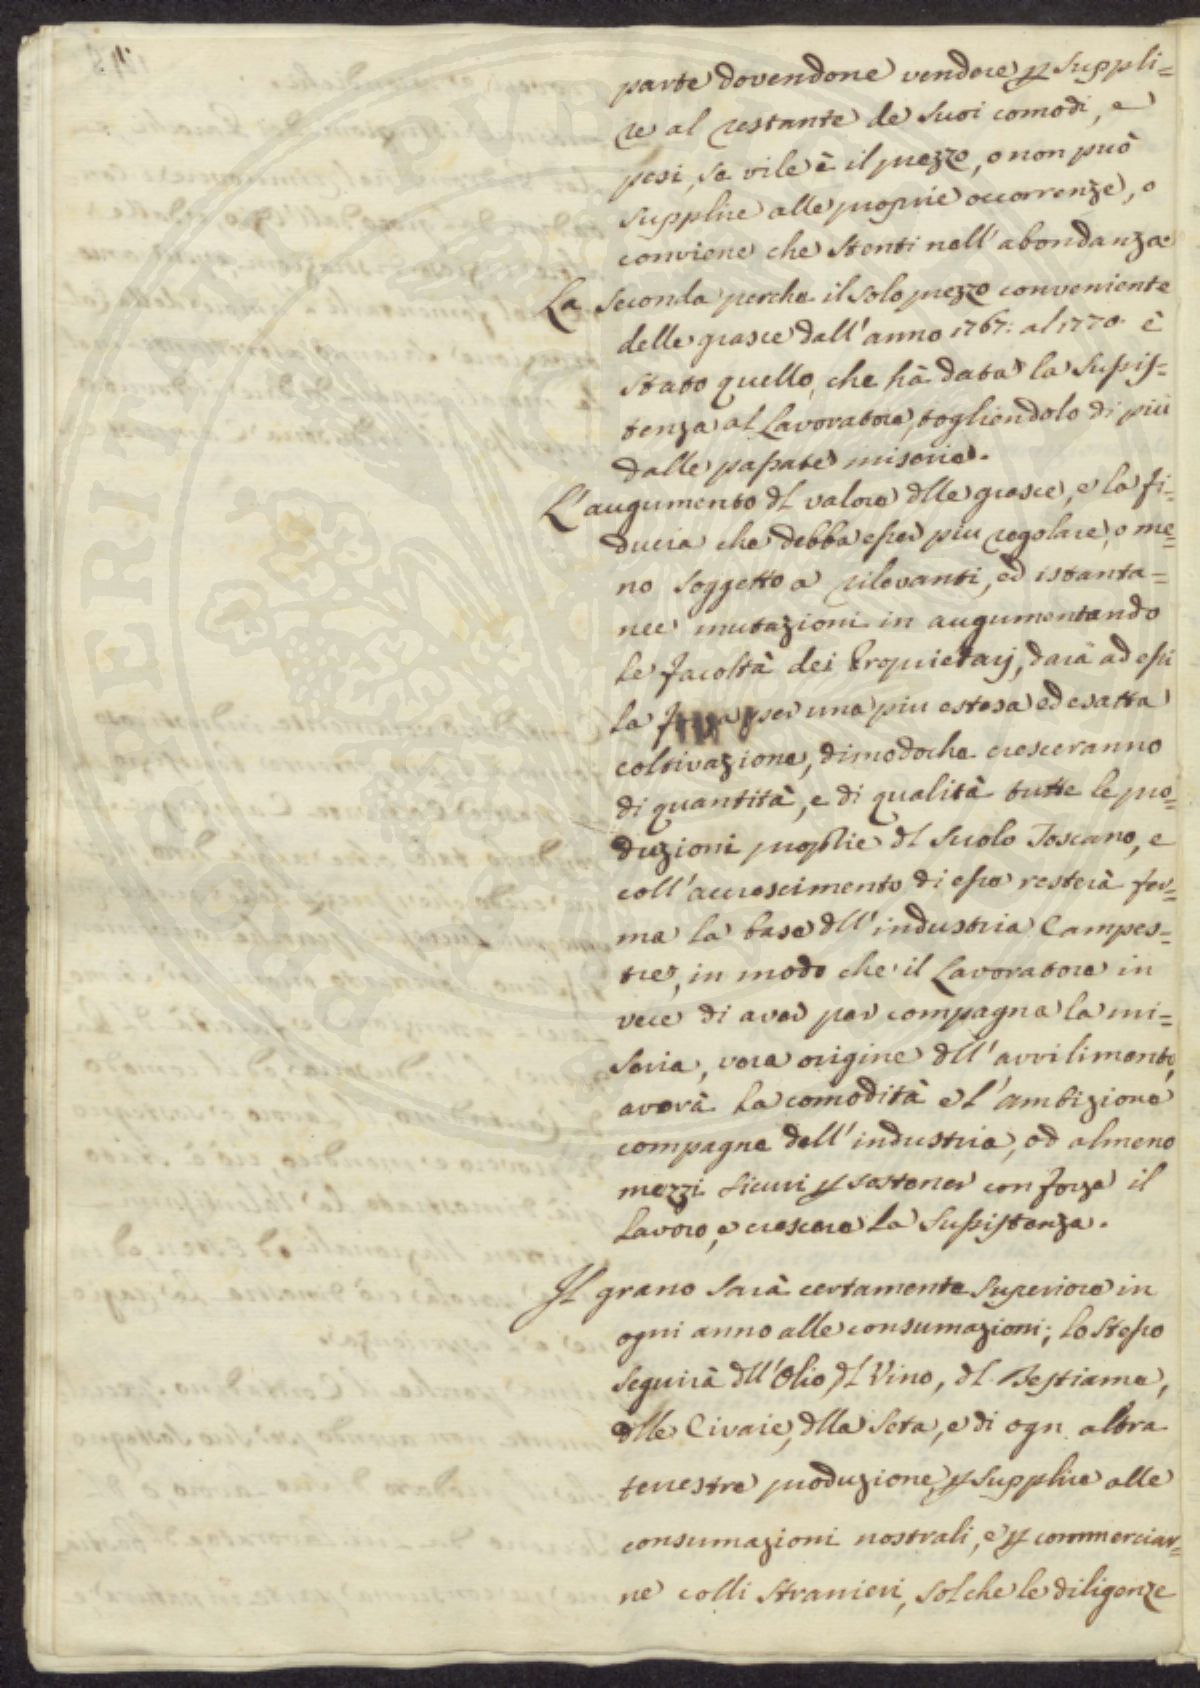 parte dovendone vendere p Suppli=
re al restante de suoi comodi, e
pesi, se vile è il prezzo, o non può
supplire alle proprie occorrenze, o
conviene che stenti nell'abondanza
La seconda perche il solo prezzo conveniente
delle grasce dall'anno 1767: al 1770. è
stato quello, che hà data la Sussis=
tenza al Lavoratore, togliendolo di più
dalle passate miserie.
L'augumento dl valore dlle grasce, e la fi=
ducia che debba esser piu regolare, o me=
no soggetto a rilevanti, ed istanta=
nee mutazioni in augumentando
le facoltà dei Proprietarj, darà ad essi
la per una piu estesa ed esatta
coltivazione, dimodoche cresceranno
di quantità, e di qualità tutte le pro=
duzioni proprie dl Suolo Toscano, e
coll'accrescimento di esse resterà fer=
ma la base dll'industria Campes=
tre, in modo che il Lavoratore in
vece di aver per compagna la mi=
seria, vera origine dll'avvilimento,
averà la comodità e l'ambizione
compagne dell'industria, ed almeno
mezzi sicuri p sostener con forza il
lavoro, e crescere la Sussistenza.
Il grano sarà certamente superiore in
ogni anno alle consumazioni; lo stesso
seguirà dll'Olio, dl Vino, dl Bestiame,
dlle Civaie, dlla Seta, e di ogn altra
terrestre produzione, p supplire alle
consumazioni nostrali, e p commerciar=
ne colli stranieri, sol che le diligenze
PUBLICATI PERITA